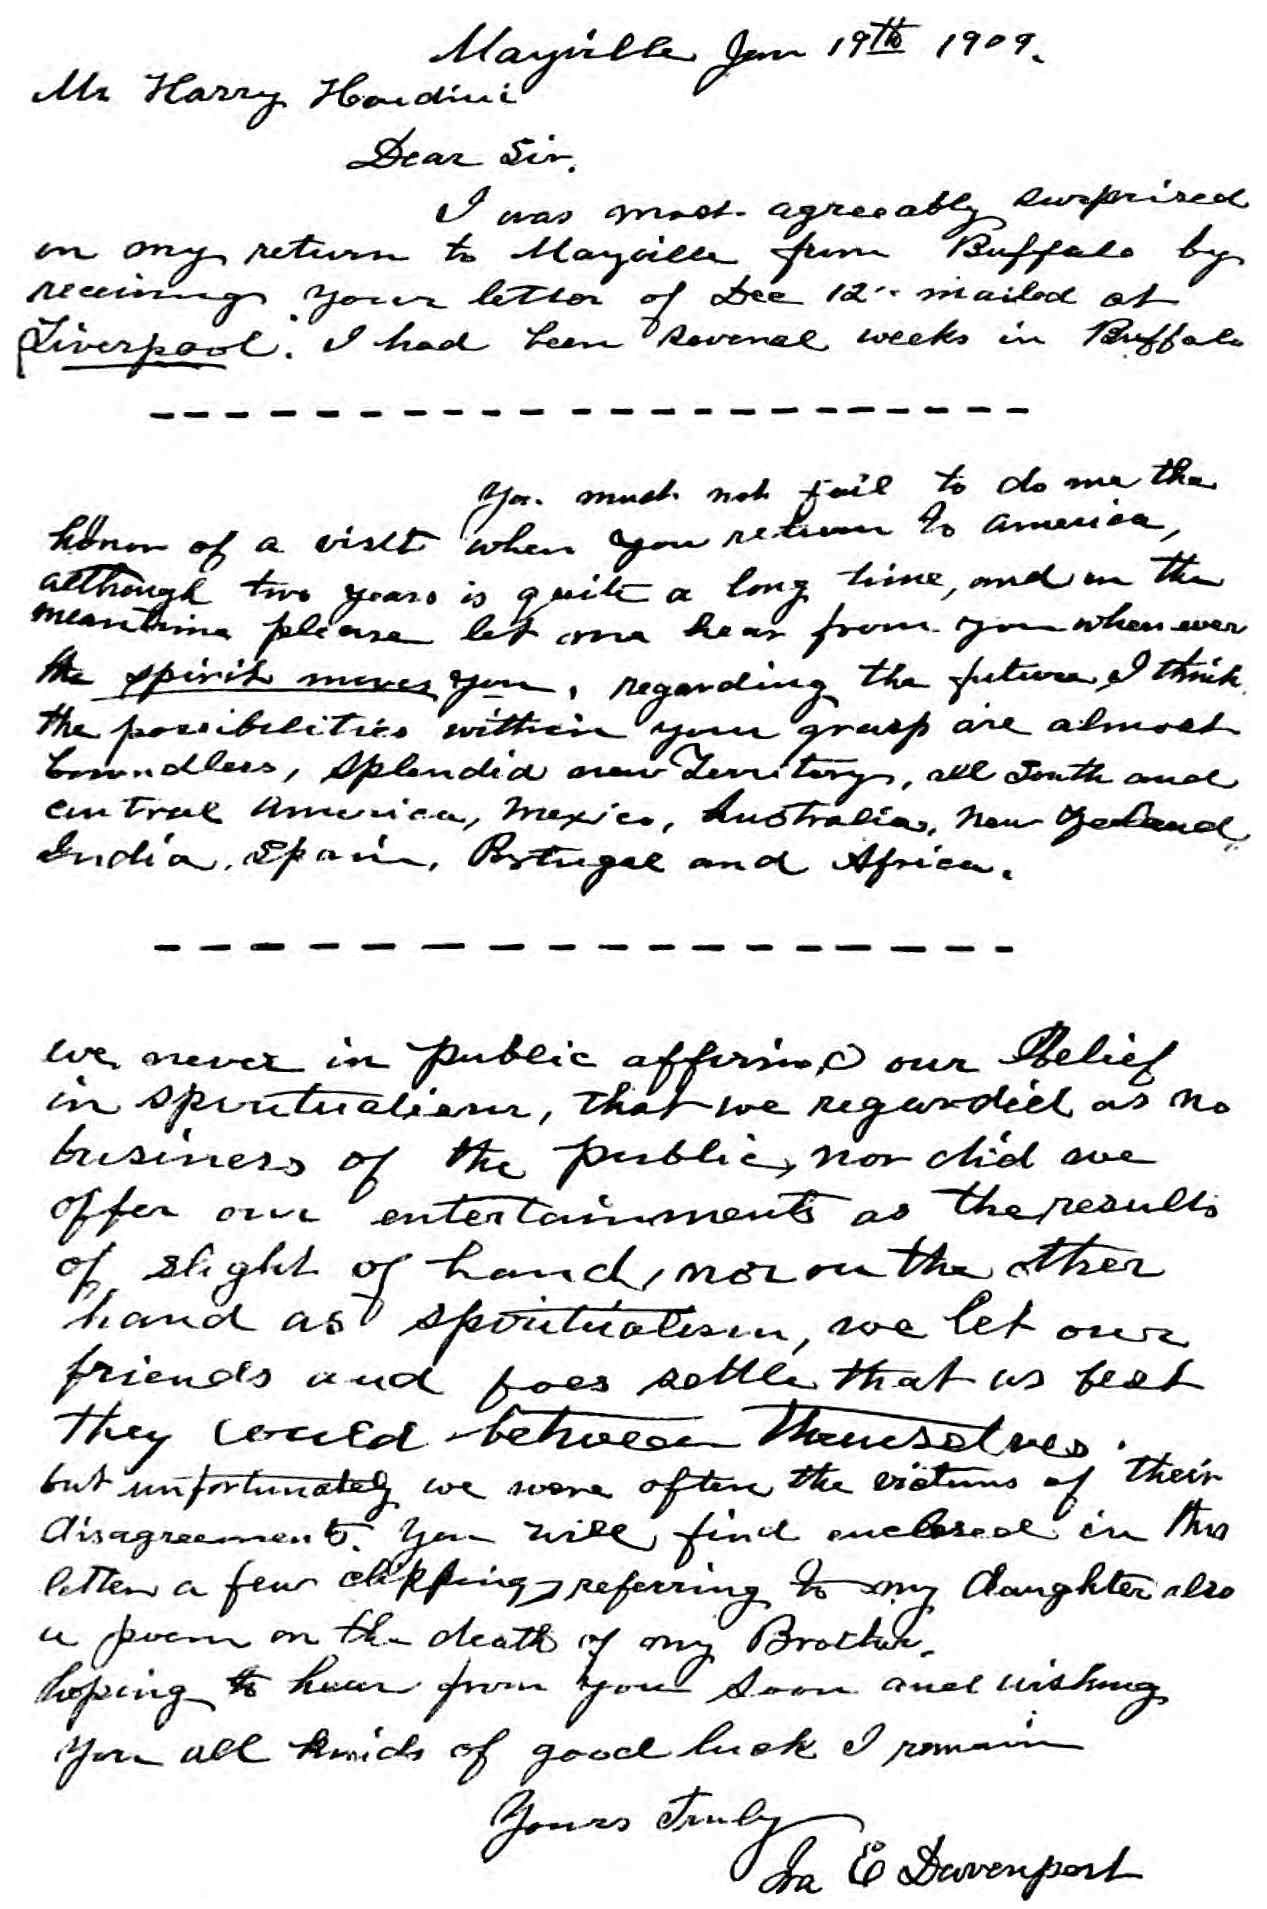 Mayville Jan 19th 1909.
Mr Harry Houdini
Dear Sir.
I was most agreeably surprised
on my return to Mayville from Buffalo by
receiving your letter of Dec 12" mailed at
Liverpool. I had been several weeks in Buffalo
You must not fail to do me the
honor of a visit when you return to america,
although two years is quite a long time, and in the
meantime please let me hear from you when ever
the spirit moves you, regarding the future, I think
the possibilities within your grasp are almost
boundless, splendid new Territory, all South and
central America, Mexico, Australia, New Zealand,
India, Spain, Portugal and Africa.
we never in public affirmed our Belief
in spiritualism, that we regarded as no
business of the public, nor did we
offer our entertainments as the results
of slight of hand, nor on the other
hand as spiritualism, we let our
friends and foes settle that as best
they could between themselves.
but unfortunately we were often the victims of their
disagreements. You will find enclosed in this
letter a few clippings referring to my daughter also
a poem on the death of my Brother.
hoping to hear from you soon and wishing
you all kinds of good luck I remain
Yours Truly
Ira E Davenport